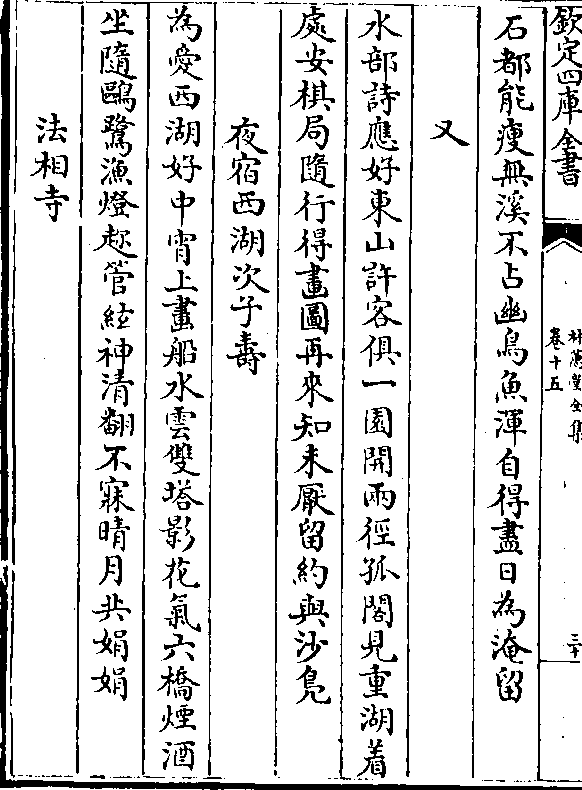 欽定四庫全書
林蕙堂全集
卷十五
三十
石都能瘦無溪不占幽鳥魚渾自得盡日為淹留
又
水部詩應好東山許客俱一園開兩徑孤閣見重湖着
處安棋局隨行得畫圖再來知未厭留約與沙鳧
夜宿西湖次子壽
為愛西湖好中宵上畫船水雲雙塔影花氣六橋煙酒
坐隨鷗鷺漁燈趂管絃神清翻不寐晴月共娟娟
法相寺